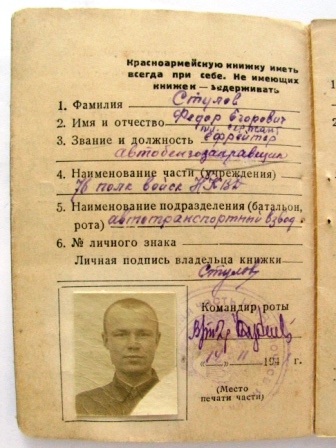 Красноармейскую книжку иметь
всегда при себе. Не имеющих
книжек — задерживать
1. Фамилия Стулов
2. Имя и отчество Федор Егорович
3. Звание и должность ефрейтор
автобензозаправщик
4. Наименование части (учреждения)
76 полк войск НКВД
5. Наименование подразделения (батальон,
рота) автотранспортный взвод
6. № личного знака
Личная подпись владельца книжки
Стулов
Командир роты
«—» 194 г.
(Место
печати части)